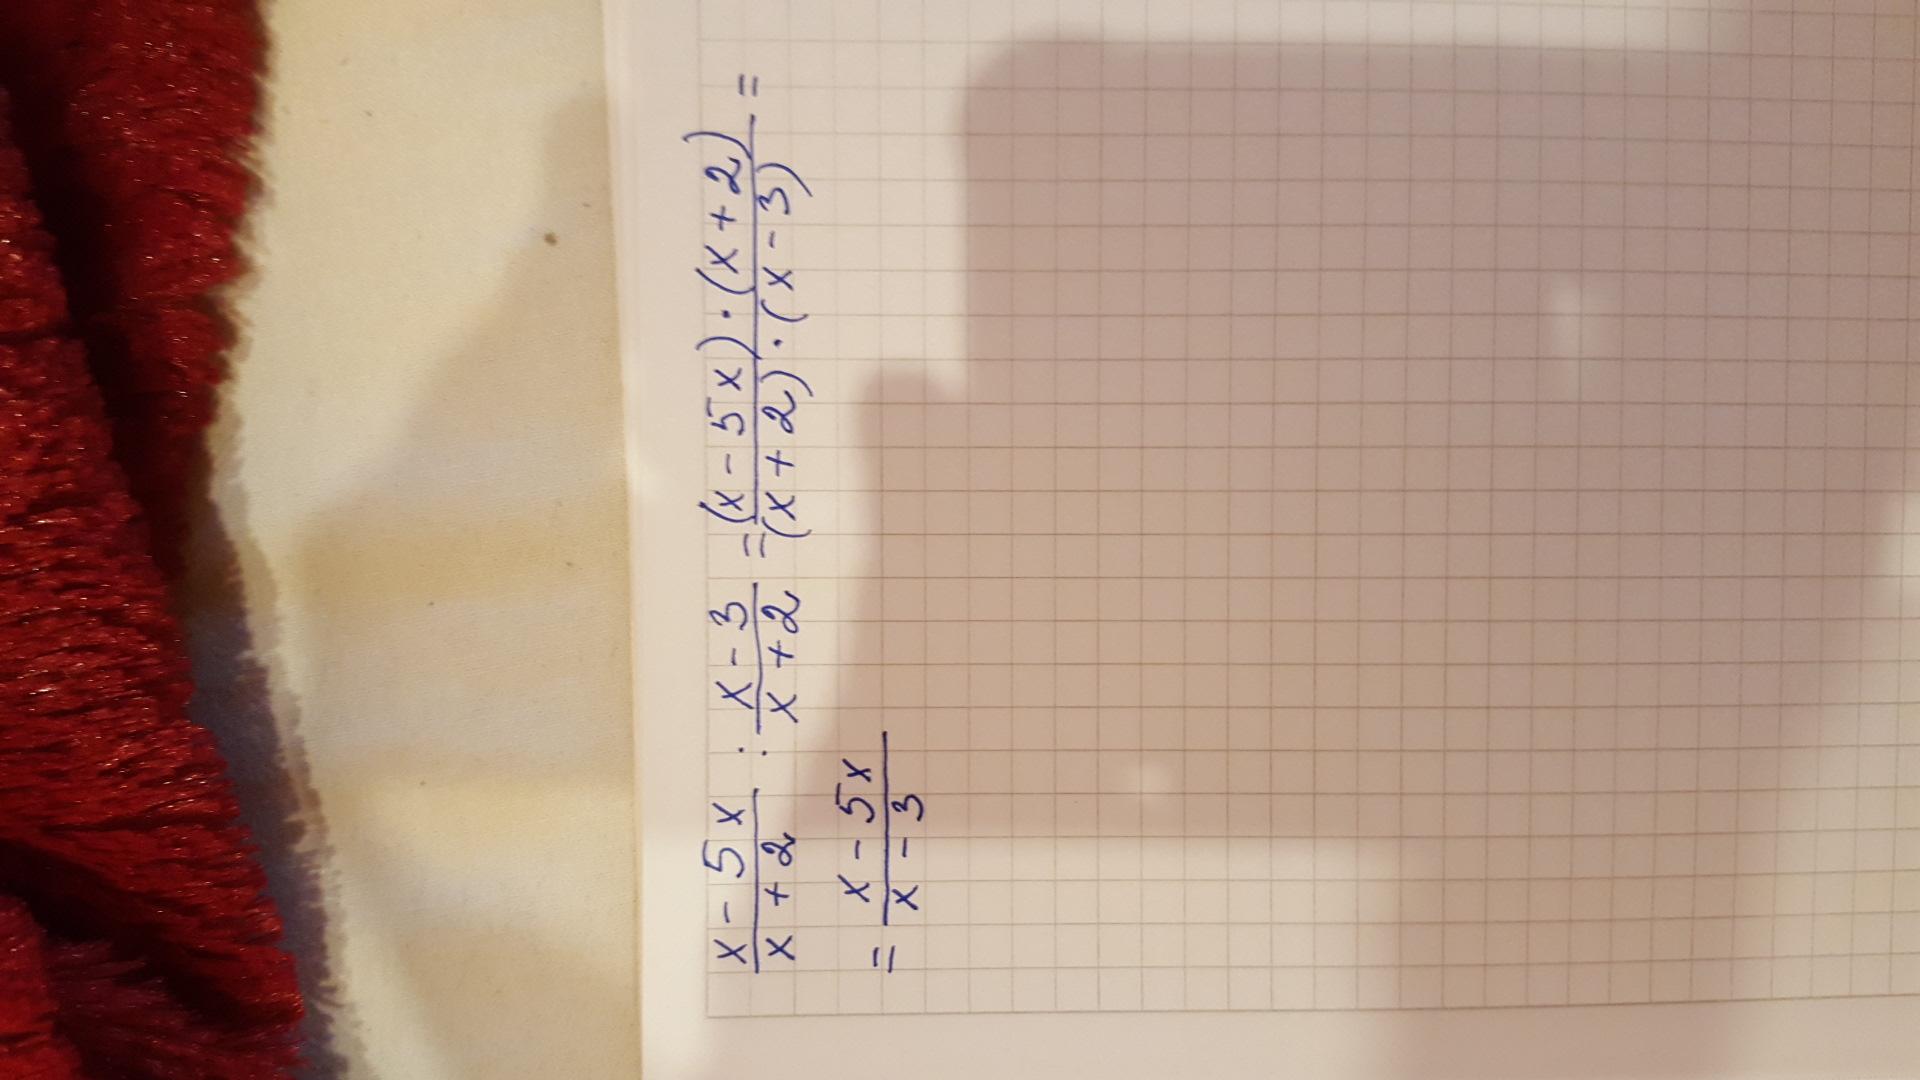 \frac{x-5x}{x+2} : \frac{x-3}{x+2} = \frac{(x-5x)\cdot(x+2)}{(x+2)\cdot(x-3)} =
= \frac{x-5x}{x-3}